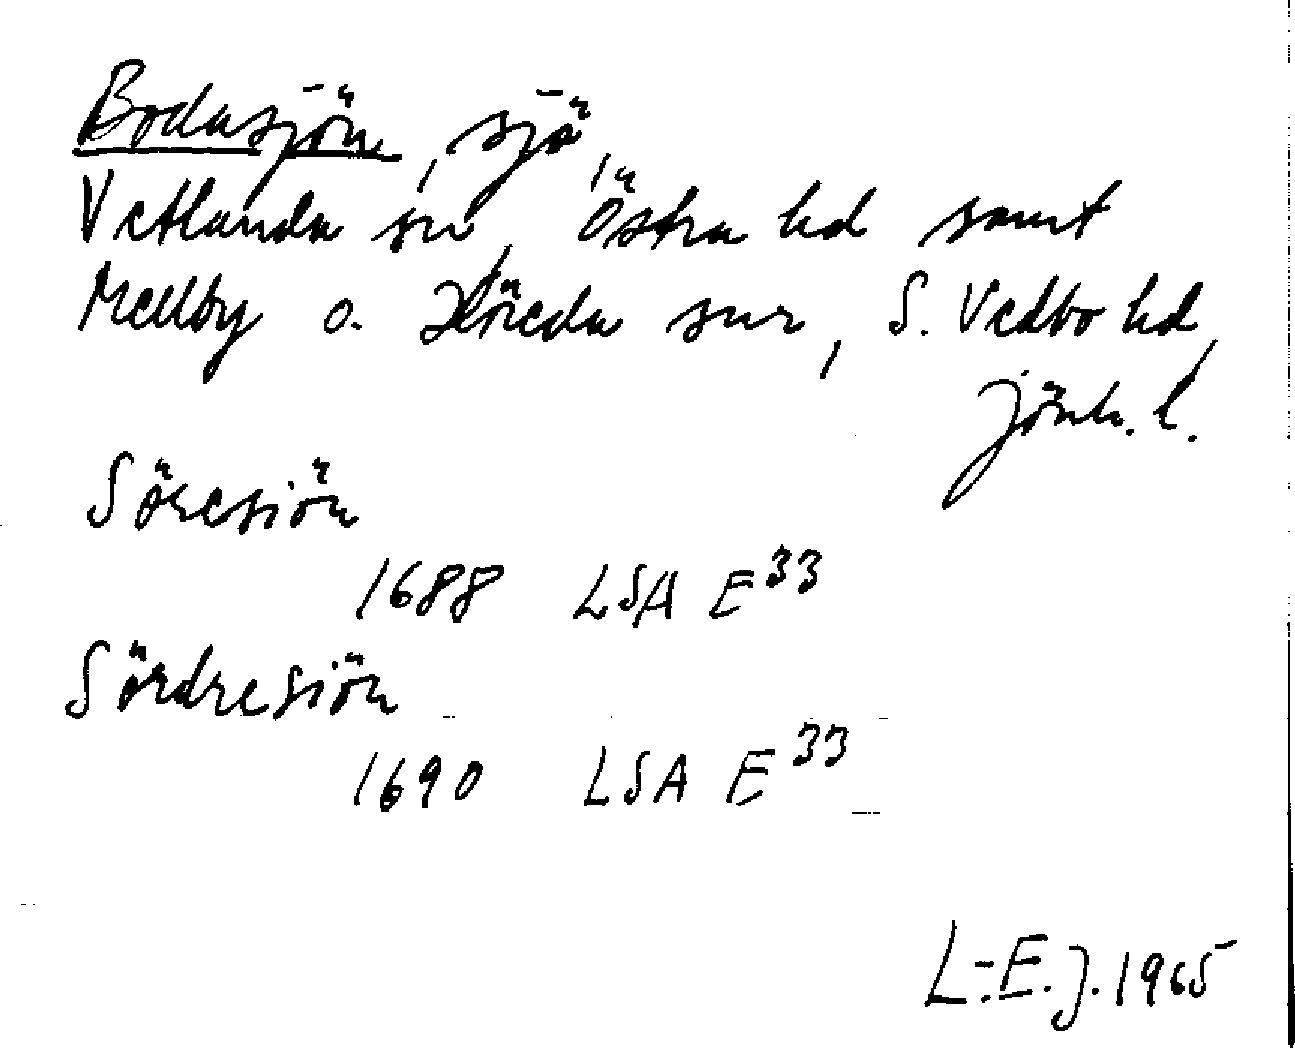 Bodasjön, sjö,
Vetlanda sn, Östra hd samt
Mellby o. Höreda snr, S. Vedbo hd,
Jönk. l.
Söresiön
1688 LSA E³³
Sördresiön
1690 LSA E³³
L.-E. J. 1965